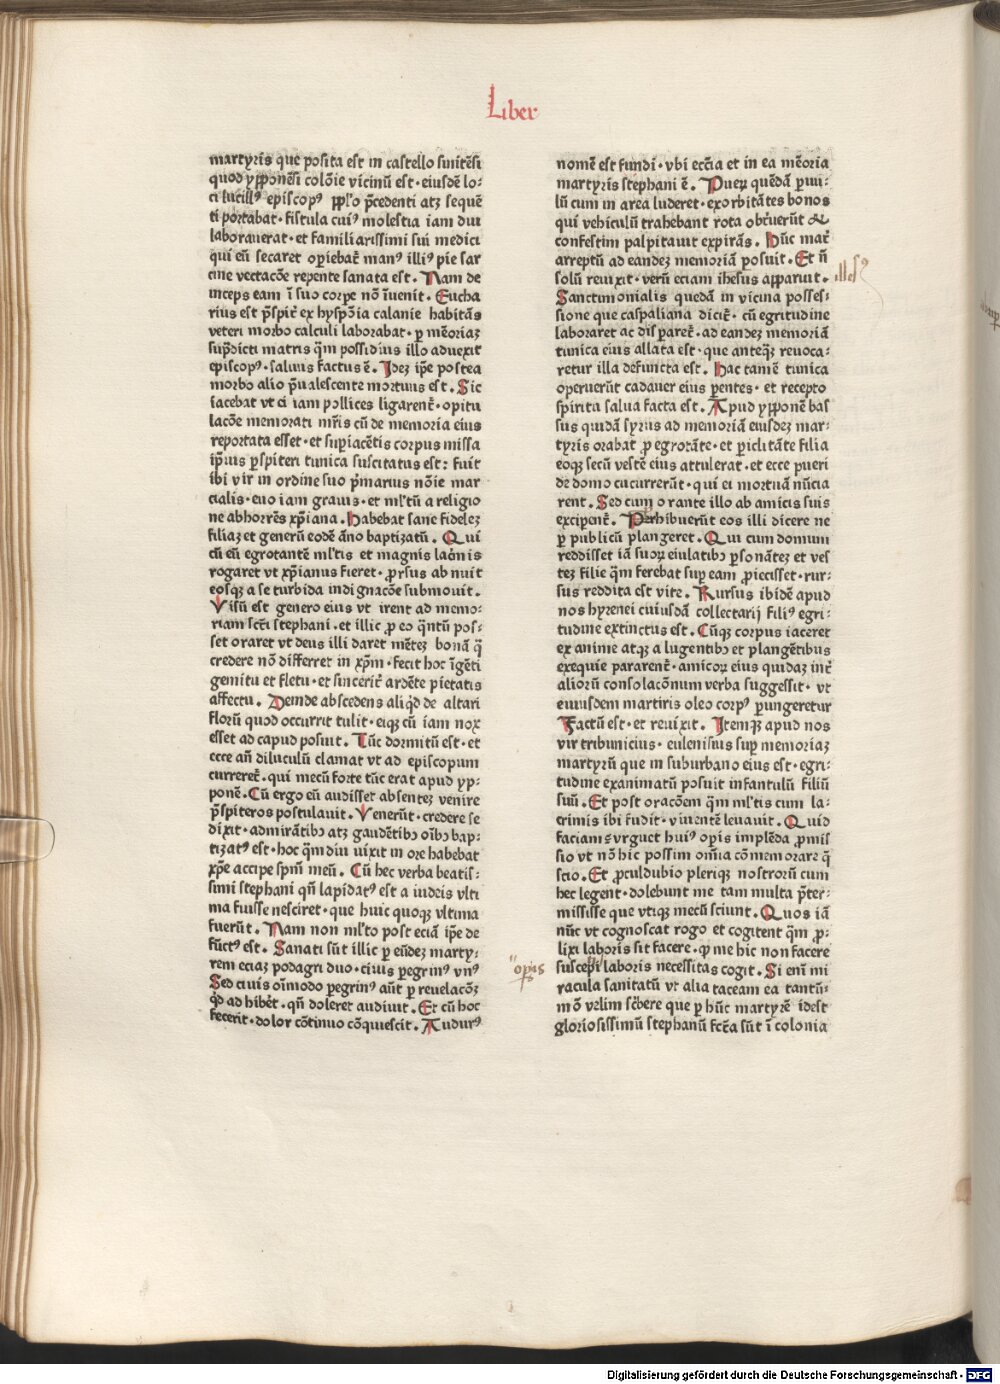 Liber
martyris que posita est in castello sinitēsi
quod yppōnēsi colōie vicinū est · eiusdē lo⸗
ci lucillꝰ episcopꝰ ppl'o p̄cedenti atqꝫ sequē
ti portabat · fistula cuiꝰ molestia iam diu
laborauerat · et familiarissimi sui medici
qui eū secaret opiebat̄ manꝰ illiꝰ pie sar
cine vectacōe repente sanata est . Nam de
inceps eam ī suo corpe nō īuenit . Eucha
rius est p̄spit̄ ex hyspōia calanie habitās
veteri morbo calculi laborabat · ꝑ mēoriaꝫ
sup̄dicti matris q̄m possidius illo aduexit
episcopꝰ · saluus factus ē . Ideꝫ ip̄e postea
morbo alio p̄ualescente mortuus est . Sic
iacebat vt ei iam pollices ligarent̄ · opitu
lacōe memorati mr̄is cū de memoria eius
reportata esset · et sup iacētis corpus missa
ip̄ius p̄spiteri tunica suscitatus est : fuit
ibi vir in ordine suo p̄marius nōie mar
cialis · euo iam grauis · et ml'tū a religio
ne abhorrēs xp̄iana . Habebat sane fideleꝫ
filiaꝫ et generū eodē āno baptizatū . Qui
cū eū egrotantē ml'tis et magnis lac̄mis
rogaret vt xp̄ianus fieret · ꝓrsus abnuit
eosqꝫ a se turbida indignacōe submouit .
Visū est genero eius vt irent ad memo⸗
riam sc̄ti stephani · et illic ꝓ eo q̄ntū pos⸗
set oraret vt deus illi daret mēteꝫ bonā q̄
credere nō differret in xp̄m · fecit hoc īgēti
gemitu et fletu · et sincerit̄ ardēte pietatis
affectu . Deinde abscedens aliq̄d de altari
florū quod occurrit tulit · eiqꝫ cū iam nox
esset ad capud posuit . Tūc dormitū est · et
ecce an̄ diluculū clamat vt ad episcopum
curreret̄ . qui mecū forte tūc erat apud yp⸗
ponē . Cū ergo eū audisset absenteꝫ venire
p̄spiteros postulauit . Venerūt · credere se
dixit · admirātibo atqꝫ gaudētibo oībo bap⸗
tizatꝰ est · hoc q̄m diu uixit in ore habebat
xp̄e accipe sp̄m meū . Cū hec verba beatis⸗
simi stephani qn̄ lapidatꝰ est a iudeis vlti
ma fuisse nesciret · que huic quoqꝫ vltima
fuerūt . Nam non ml'to post eciā ip̄e de
fūctꝰ est . Sanati sūt illic ꝑ eūdeꝫ marty⸗
rem eciaꝫ podagri duo · ciuis ꝑegrinꝰ vnꝰ
Sed ciuis oīmodo ꝑegrinꝰ aūt ꝑ reuelacōꝫ
q̄d adhibēt · qn̄ doleret audiuit . Et cū hoc
fecerit · dolor cōtinuo cōquiescit . Audurꝰ
nomē est fundi · vbi ecc̄ia et in ea mēoria
martyris stephani ē . Pueꝝ quēdā ꝑuu⸗
lū cum in area luderet · exorbitātes boues
qui vehiculū trahebant rota obt̄uerūt &
confestim palpitauit expirās . Hūc mat̄
arreptū ad eandeꝫ memoriā posuit . Et n̄
solū reuixit · verū eciam ihesus apparuit .
illesꝰ
Sanctimonialis quedā in vicina posses⸗
sione que caspaliana dicit̄ · cū egritudine
laboraret ac disparet̄ · ad eandeꝫ memoriā
tunica eius allata est · que anteqꝫ reuoca⸗
retur illa defuncta est . Hac tamē tunica
operuerūt cadauer eius ꝑentes · et recepto
spiritu salua facta est . Apud ypponē bas
sus quidā syrus ad memoriā eiusdeꝫ mar⸗
tyris orabat ꝓ egrotāte · et ꝑiclitāte filia
eoqꝫ secū vestē eius attulerat · et ecce pueri
de domo cucurrerūt · qui ei mortuā nūcia
rent . Sed cum orante illo ab amicis suis
exciperent̄ . Perhibuerūt eos illi dicere ne
ꝑ publicū plangeret . Qui cum domum
reddisset iā suoꝝ eiulatibo ꝑsonātez et ves
teꝫ filie q̄m ferebat sup eam ꝓiecisset · rur⸗
sus reddita est vite . Rursus ibidē apud
nos hyrenei cuiusdā collectarij filiꝰ egri⸗
tudine extinctus est . Cūqꝫ corpus iaceret
exanime atqꝫ a lugentibo et plangētibus
exequie pararent̄ · amicoꝝ eius quidaꝫ int̄
aliorū consolacōnum verba suggessit · vt
eiuusdem martiris oleo corpꝰ ꝑungeretur
Factū est · et reuixit . Itemqꝫ apud nos
vir tribunicius · eulenisius sup memoriaꝫ
martyrū que in suburbano eius est · egri⸗
tudine exanimatū posuit infantulū filiū
suū . Et post oracōem q̄m ml'tis cum la⸗
crimis ibi fudit · viuentē leuauit . Quid
faciam⸗vrguet huiꝰ opis implēda ꝓmis
sio vt nō hic possim om̄ia cōmemorare q̄
scio . Et ꝓculdubio pleriqꝫ nostrorū cum
hec legent · dolebunt me tam multa p̄ter⸗
misisse que vtiqꝫ mecū sciunt . Quos iā
nūc vt cognoscat rogo et cogitent q̄m ꝓ⸗
lixi laboris sit facere · qd me hic non facere
opis
suscepi laboris necessitas cogit . Si enī mi
racula sanitatū vt alia taceam ea tantū⸗
mō velim sc̄bere que ꝑ hūc martyrē idest
gloriosissimū stephanū fc̄ta sūt ī colonia
Digitalisierung gefördert durch die Deutsche Forschungsgemeinschaft - DFG